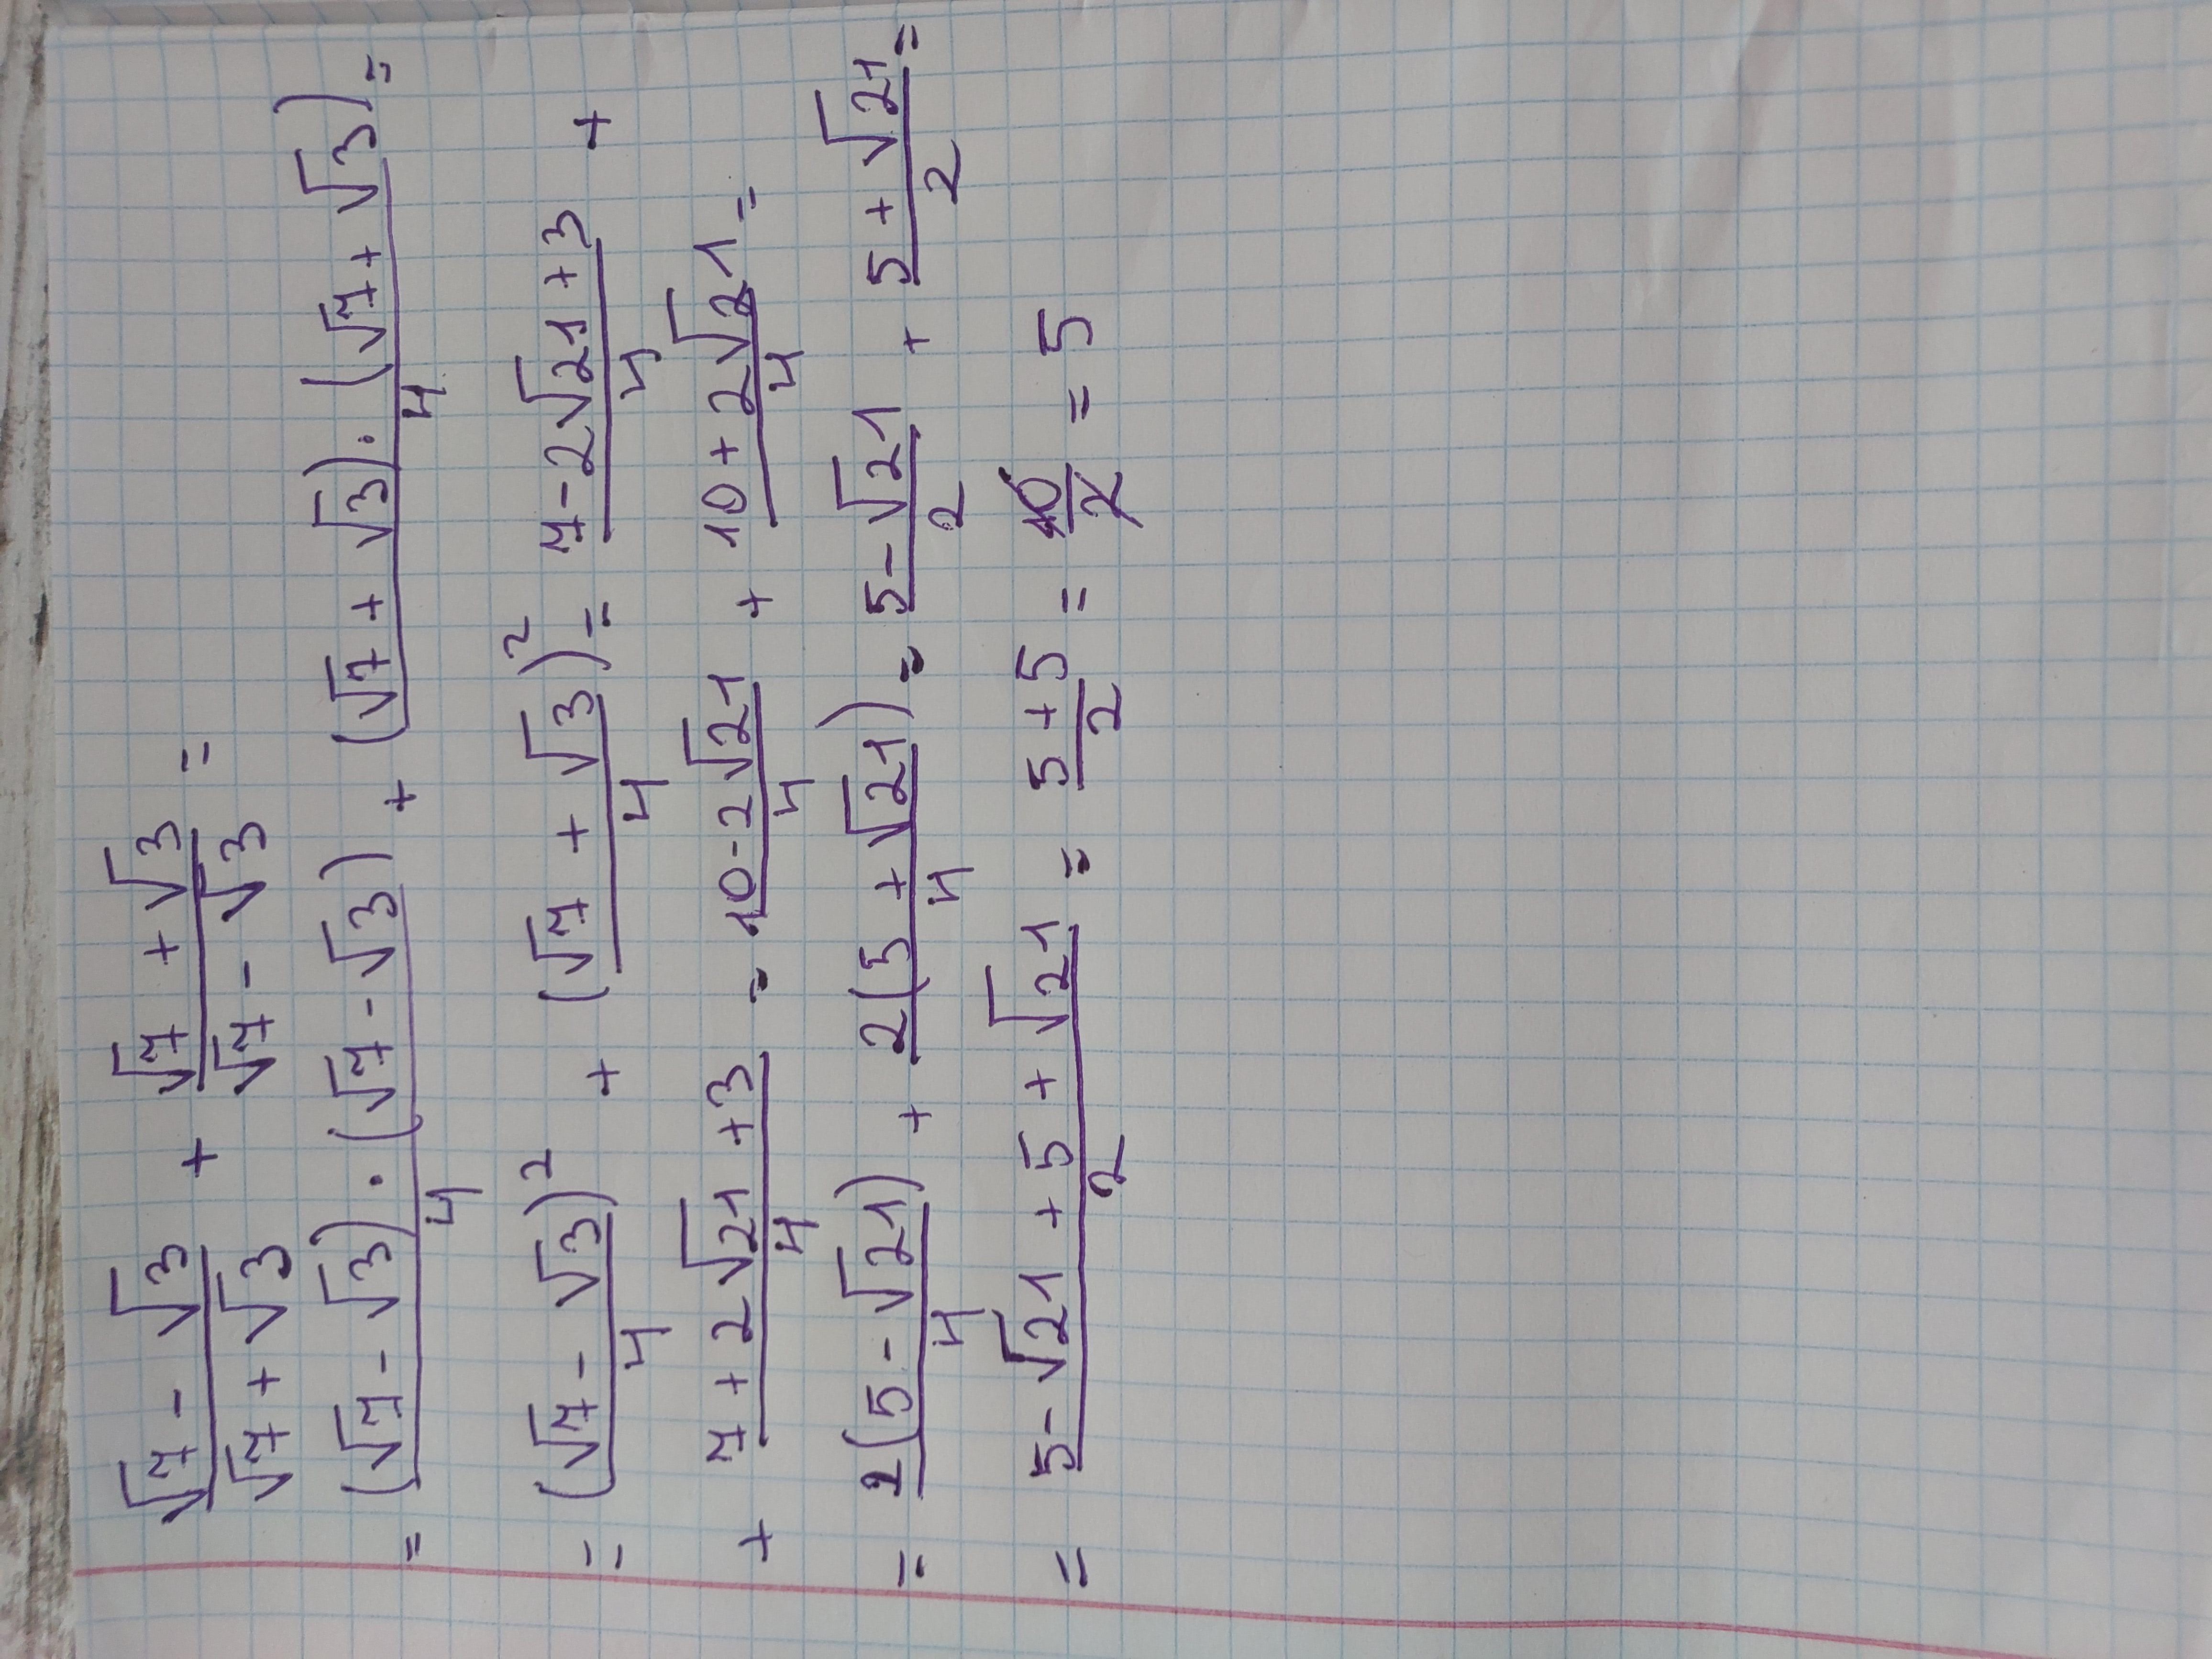 (√7 - √3)/(√7 + √3) + (√7 + √3)/(√7 - √3) =
= ((√7 - √3) · (√7 - √3))/4 + ((√7 + √3) · (√7 + √3))/4 =
= (√7 - √3)²/4 + (√7 + √3)²/4 = (7 - 2√21 + 3)/4 +
+ (7 + 2√21 + 3)/4 = (10 - 2√21)/4 + (10 + 2√21)/4 =
= 2(5 - √21)/4 + 2(5 + √21)/4 = (5 - √21)/2 + (5 + √21)/2 =
= (5 - √21 + 5 + √21)/2 = (5 + 5)/2 = 10/2 = 5